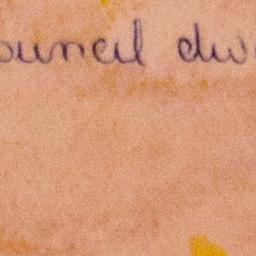 ouncil dw